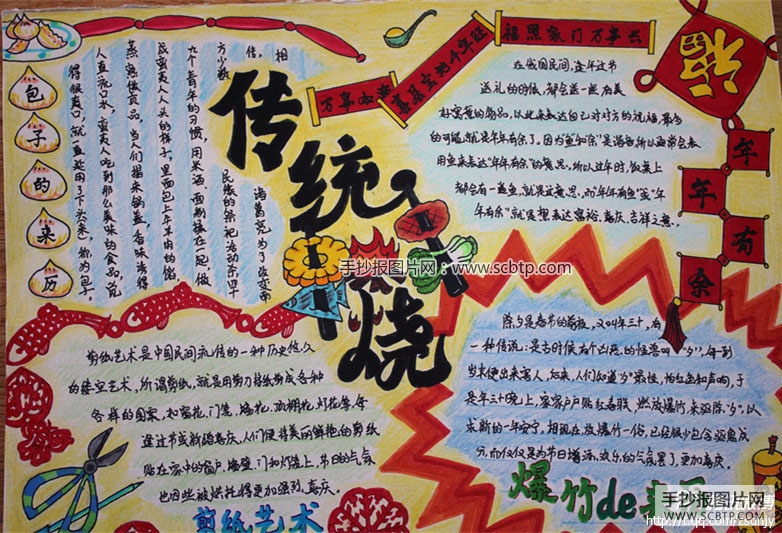 包
子
的
来
历
相
传，
诸葛亮为了改变南
方少数
民族的祭祀活动杀四十
九个青年的习惯，用米酒、面粉揉在一起做
成蛮夷人人头的样子，里面包上牛羊肉的馅，
蒸熟做贡品，
得很爽口，就一直延用了下来，
传统
烧
万事如意
福照家门万事兴
福
年
年
有
余
在我国民间，逢年过节
送礼的时候，都会送一些有美
好寓意的商品，以此来表达自己对对方的祝福，最多
的可能就是年年有余了。因为鱼和余"是谐音所以通常会表
用鱼来表达"年年有余"的寓意，所以过年时，饭桌上
都会有一盘鱼，就是这意思，而年年有鱼"或"年
年有余"就是想表达富裕、喜庆、吉祥之意。
手抄报图片网：www.scbtp.com
剪纸艺术是中国民间流传的一种历史悠久
的镂空艺术，所谓剪纸，就是用剪刀将纸剪成各种
各样的图案，如窗花、门笺、墙花、顶棚花、灯花等。每
逢过节或新婚喜庆，人们便将美丽鲜艳的剪纸
贴在家中的窗户、墙壁、门和灯笼上，节日的气氛
也因此被烘托得更加强烈、喜庆。
剪纸艺术
除夕是春节的前夜，又叫年三十，有
一种传说：是古时候有个凶恶的怪兽叫"夕"，每到
岁末便出来害人，后来，人们知道"夕"最怕红色和声响，于
是年三十晚上，家家户户贴红春联，燃放爆竹，来驱除"夕"，以
求新的一年安宁，
分，而仅仅是为节日增添欢乐的气氛罢了，更加喜庆。
爆竹de来历
手抄报图片网
SCBTP.COM